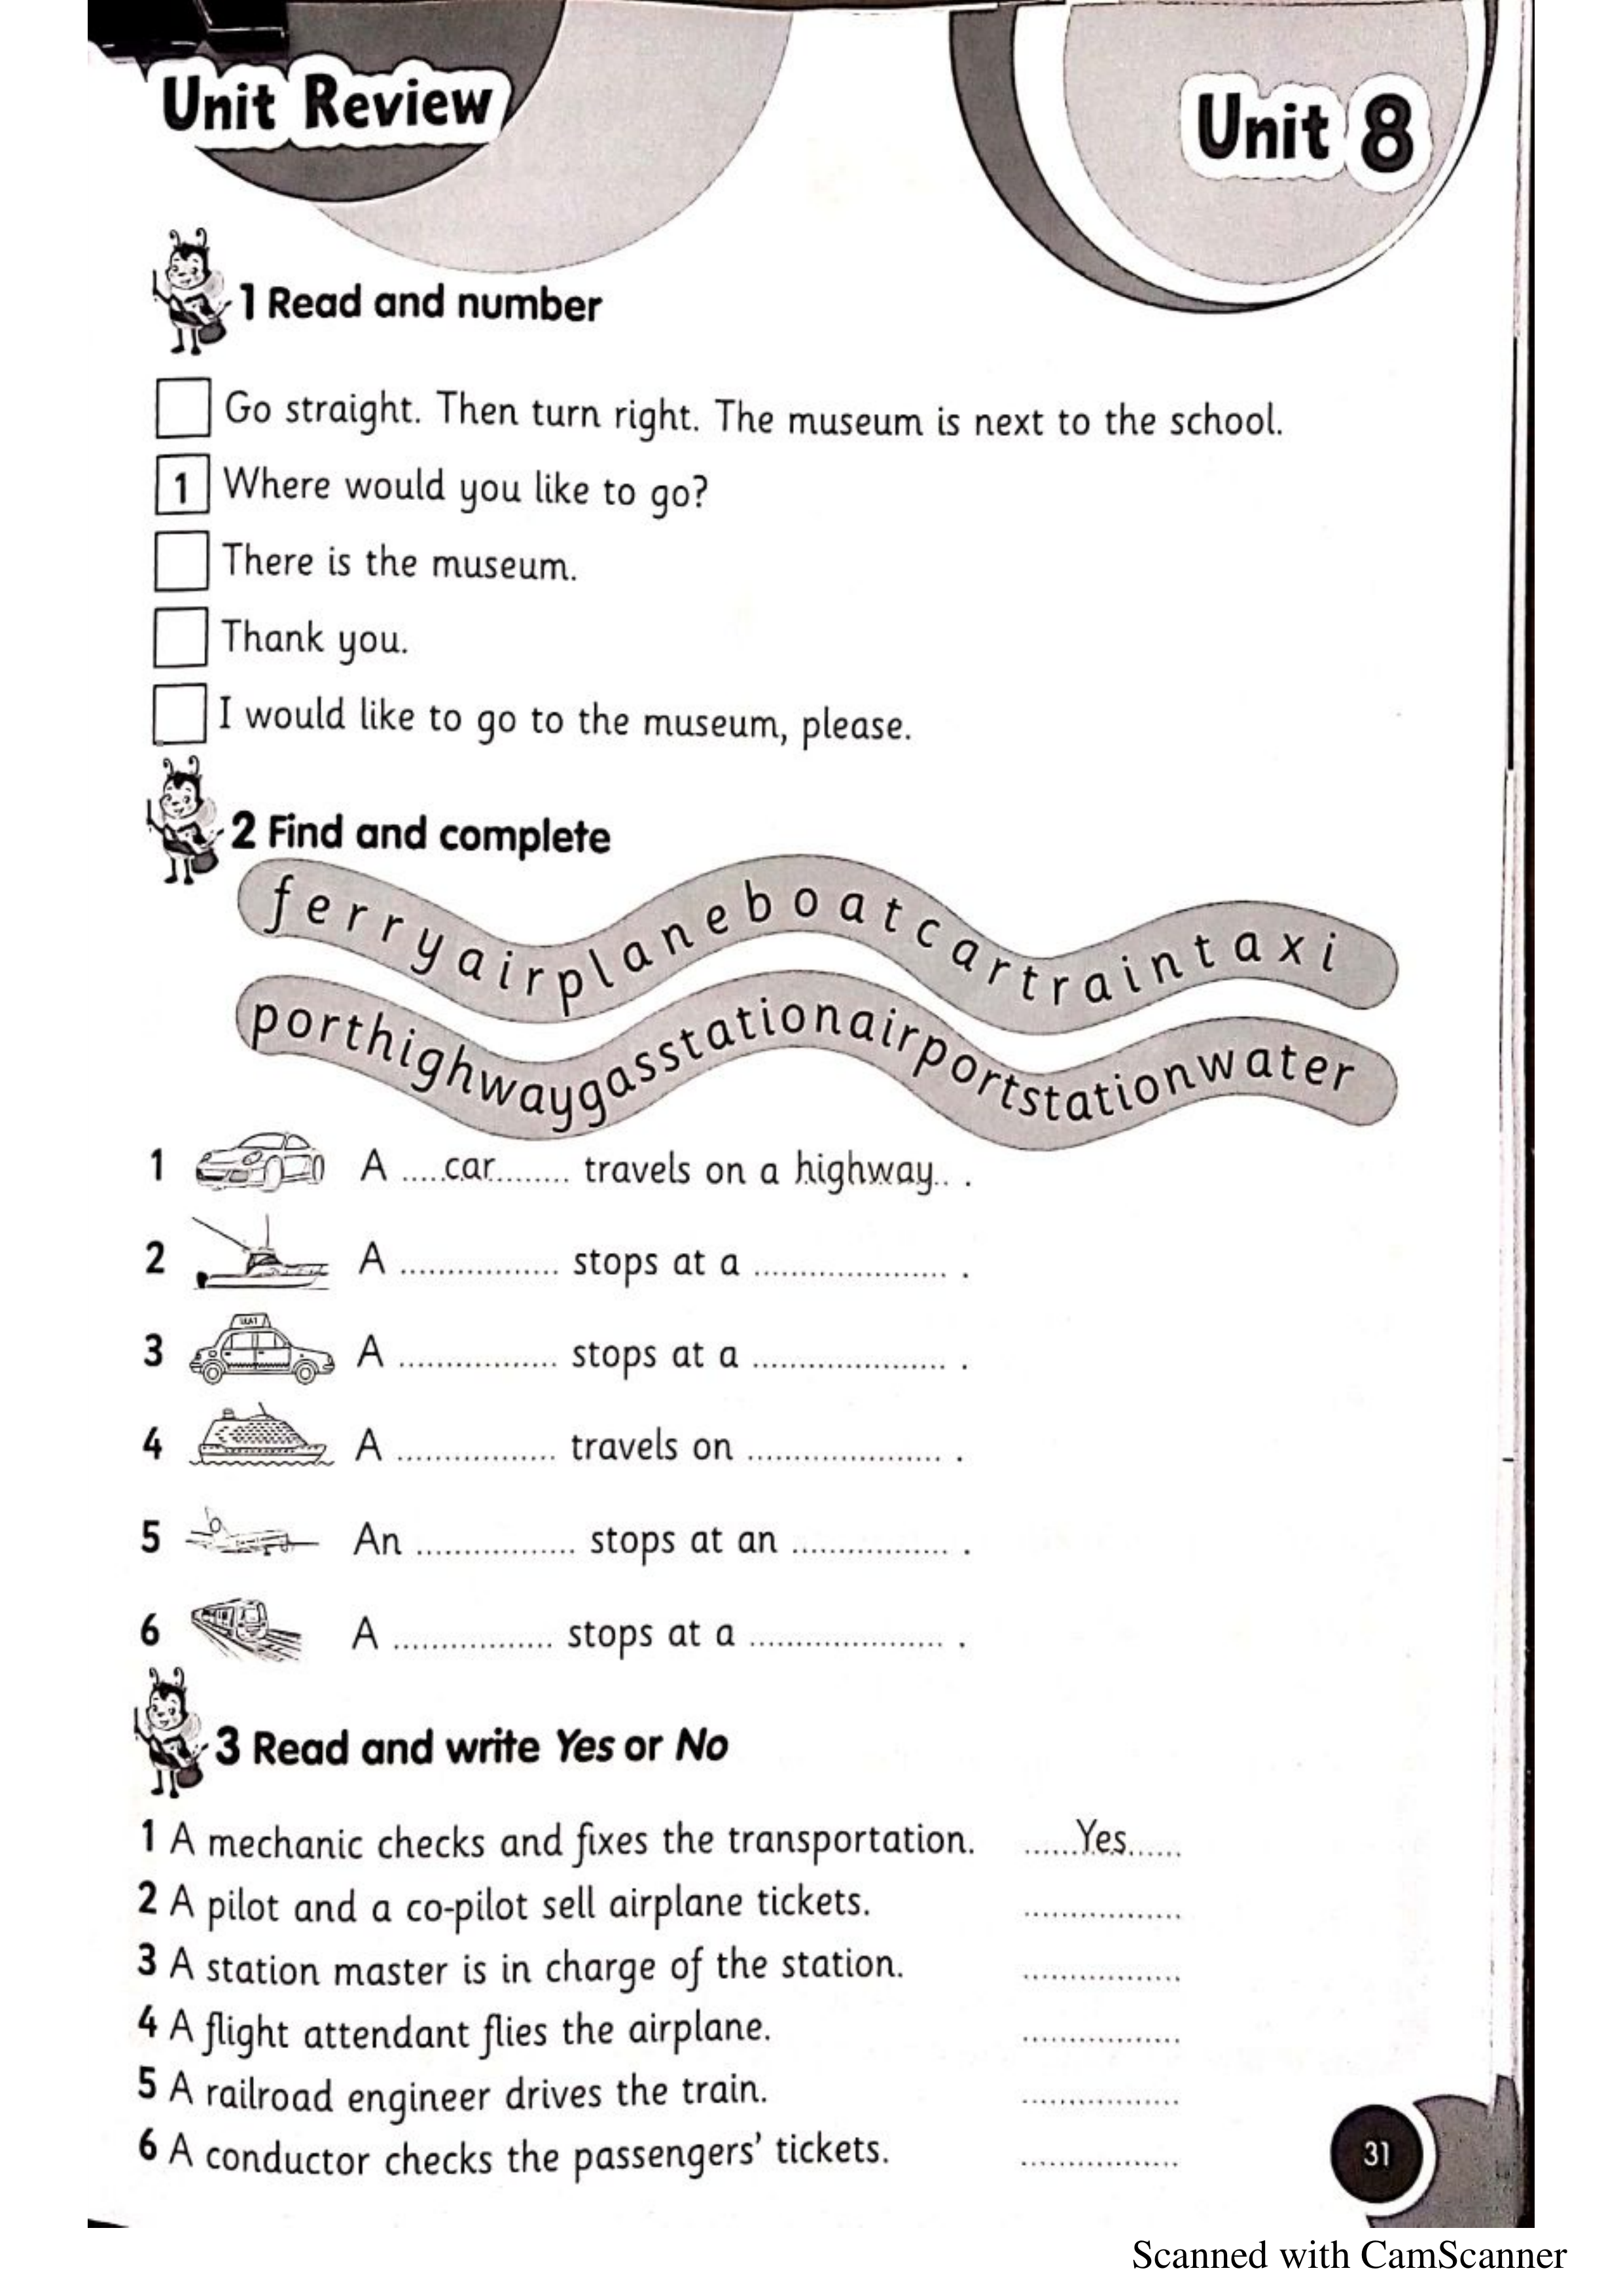 Unit Review
Unit 8
1 Read and number
Go straight. Then turn right. The museum is next to the school.
1 Where would you like to go?
There is the museum.
Thank you.
I would like to go to the museum, please.
2 Find and complete
ferryairplaneboatcartraintaxi
porthighwaygasstationairportstationwater
1 A .....car......... travels on a highway.. .
2 A ................ stops at a .................... .
TAXI
3 A ................ stops at a .................... .
4 A ................ travels on .................... .
5 An ................ stops at an ................ .
6 A ................ stops at a .................... .
3 Read and write Yes or No
1 A mechanic checks and fixes the transportation. ......Yes......
2 A pilot and a co-pilot sell airplane tickets. ................
3 A station master is in charge of the station. ................
4 A flight attendant flies the airplane. ................
5 A railroad engineer drives the train. ................
6 A conductor checks the passengers' tickets. ................
31
Scanned with CamScanner